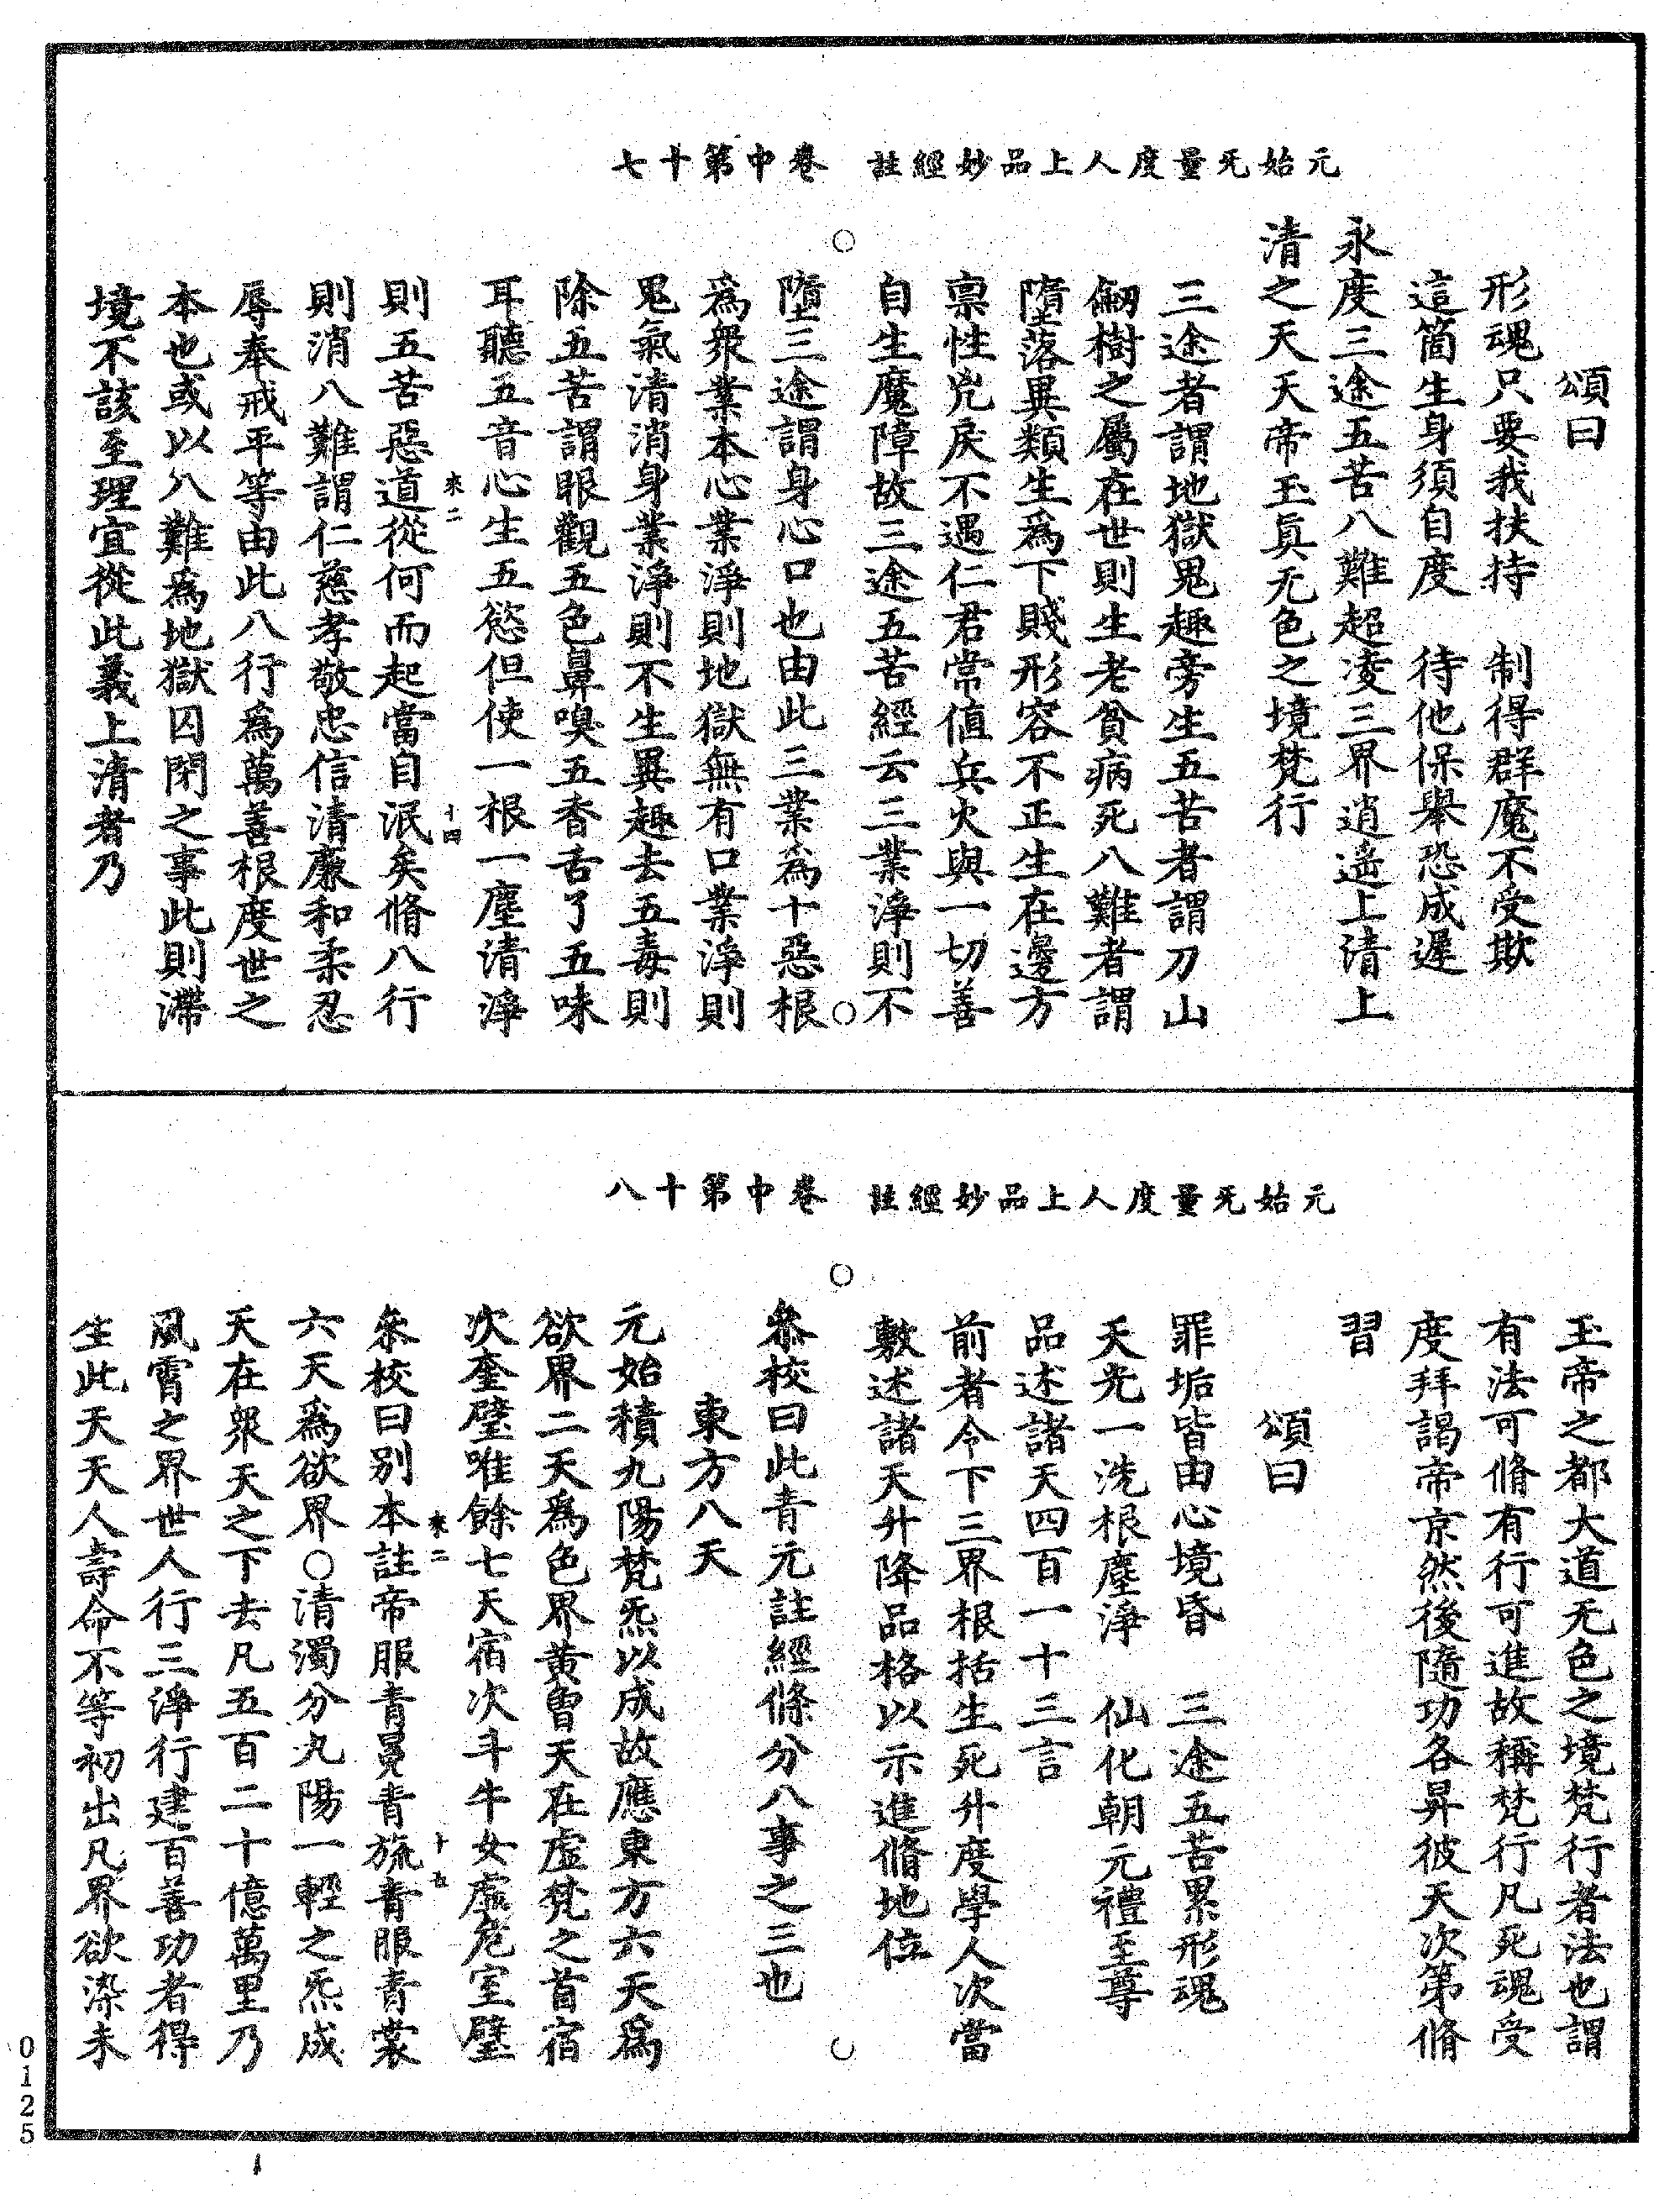 元始无量度人上品妙經註 卷中第十七
頌曰
形魂只要我扶持 制得群魔不受欺
這箇生身須自度 待他保舉恐成遲
永度三途五苦八難超凌三界逍遙上清上
清之天天帝玉眞无色之境梵行
三途者謂地獄鬼趣旁生五苦者謂刀山
劒樹之屬在世則生老貧病死八難者謂
墮落異類生爲下賤形容不正生在邊方
禀性兇戾不遇仁君常値兵火與一切善
自生魔障故三途五苦經云三業淨則不
墮三途謂身心口也由此三業為十惡根
爲衆業本心業淨則地獄無有口業淨則
鬼氣清消身業淨則不生異趣去五毒則
除五苦謂眼觀五色鼻嗅五香舌了五味
耳聽五音心生五慾但使一根一塵清淨
則五苦惡道從何而起當自泯矣脩八行
來二 十四
則消八難謂仁慈孝敬忠信清廉和柔忍
辱奉戒平等由此八行爲萬善根度世之
本也或以八難爲地獄囚閉之事此則滯
境不該至理宜從此義上清者乃
元始无量度人上品妙經註 卷中第十八
玉帝之都大道无色之境梵行者法也謂
有法可脩有行可進故稱梵行凡死魂受
度拜謁帝京然後隨功各昇彼天次第脩
習
頌曰
罪垢皆由心境昏 三途五苦累形魂
天光一洗根塵淨 仙化朝元禮至尊
品述諸天四百一十三言
前者令下三界根括生死升度學人次當
敷述諸天升降品格以示進脩地位
叅校曰此青元註經條分八事之三也
東方八天
元始積九陽梵炁以成故應東方六天爲
欲界二天爲色界黄曾天在虛梵之首宿
次奎壁唯餘七天宿次斗牛女虛危室壁
叅校曰别本註帝服青冕青旒青服青裳
來二 十五
六天爲欲界○清濁分九陽一輕之炁成
天在衆天之下去凡五百二十億萬里乃
風霄之界世人行三淨行建百善功者得
生此天天人壽命不等初出凡界欲染未
0125